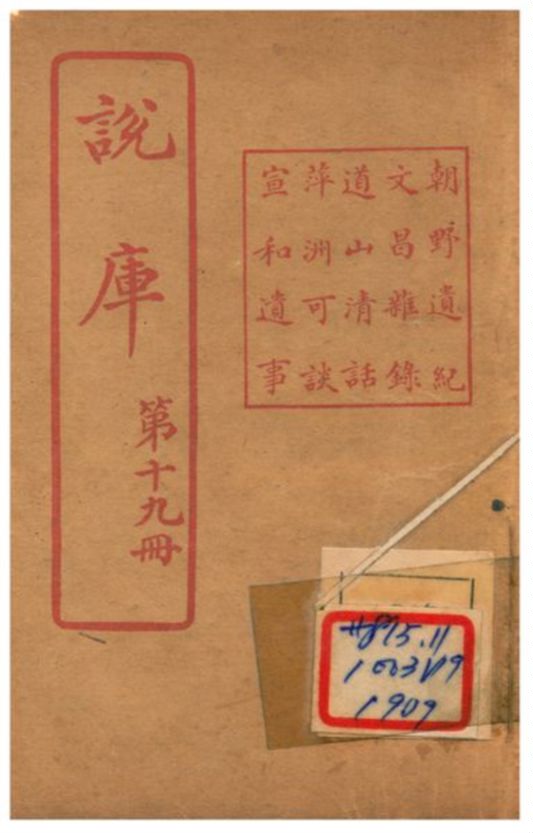 朝野遺紀
文昌雜錄
道山清話
萍洲可談
宣和遺事
說庫
第十九冊
#895.11
1003V19
1909